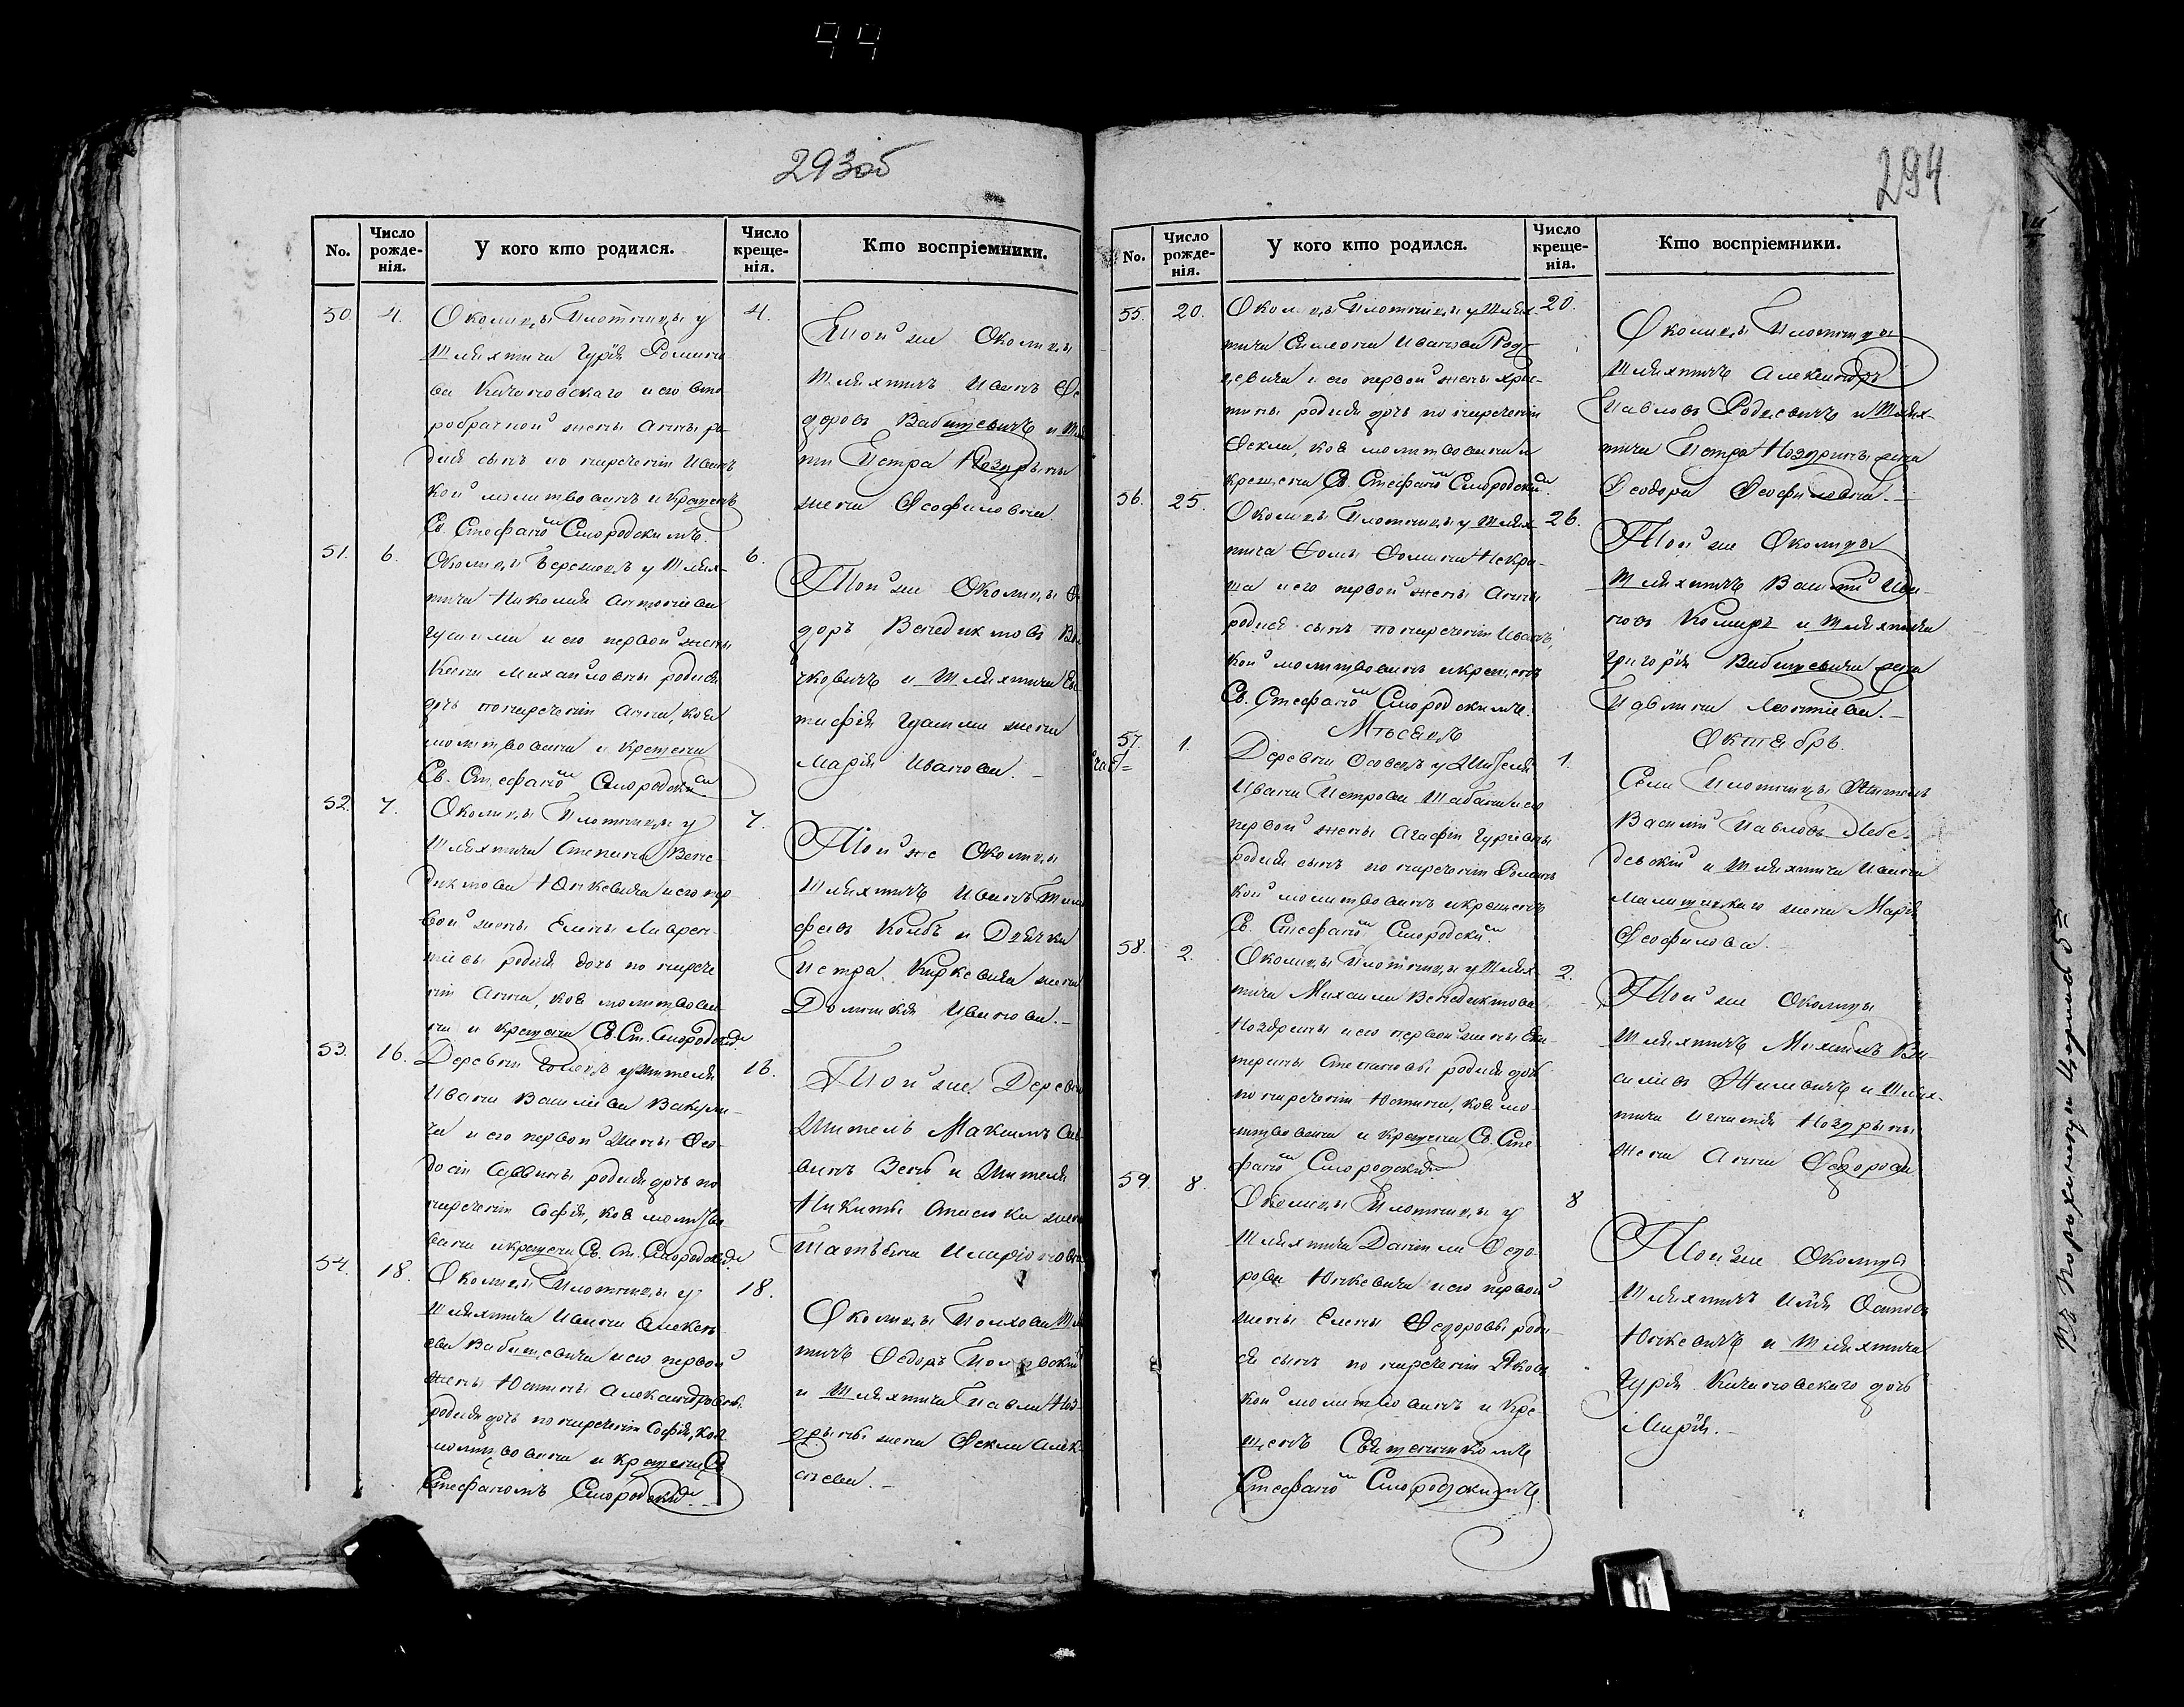 44
293об
No.
Число рожде-нія.
У кого кто родился.
Число креще-нія.
Кто воспріемники.
50. 4. Околицы Плотницы у 4.
Шляхтича Гурія Романо-
ва Качановскаго и его вто
робрачной жены Анны ро-
дился сынъ по нареченiи Иванъ
кой молитвованъ и крещенъ
Св. Стефаномъ Смородскимъ.
Той же Околицы
Шляхтичъ Иванъ Ѳе
доровъ Вабищевичъ и
Петра Ноздрины
жена Ѳеофиловна.
51. 6. Околицы Бережецъ у Шлях- 6.
тича Николая Антоніева
и его первой жены
Ксеніи Михайловны родися
дочь по нареченiи Анна, коя
молитвована и крещена
Св. Стефаномъ Смородским
Той же Околицы Ѳе
доръ Венедиктовъ
чковичъ и Шляхтича Ев
жена
Марія Иванова.
52. 7. Околицы Плотницы у 7.
Шляхтича Степана Вене-
диктова Юнкевича и его пер
вой жены Елены Лаврен-
тіевы родися дочь по нарече
ніи Анна, коя молитвова
на и крещена Св. Ст. Смородским
Той же Околицы
Шляхтичъ Иванъ
феевъ Колбъ и Дячка
Петра Киркевича жена
Доминикія Иванова.
53. 16. Деревни у жителя 16.
Ивана Василіева Вакули-
ча и его первой жены Ѳео-
досіи Саввины родися дочь по
нареченіи Софія, коя молитво-
вана и крещена Св. Ст. Смородским
Той же Деревни
Житель Максимъ Сав
винъ Зень и Жителя
Никиты Онисюка жена
Татьяна Иларіонова
54. 18. Околицы Плотницы у 18.
Шляхтича Ивана Алексѣ
ева Вабищевича и его первой
жены Юстины Александровны
родися дочь по нареченіи Софія, коя
молитвована и крещена Св
Стефаномъ Смородским
Околицы
тичъ Ѳедоръ
и Шляхтича Павла Ноз-
дрины жена Ѳекла Алек
сѣева.
294
No.
Число рожде-нія.
У кого кто родился.
Число креще-нія.
Кто воспріемники.
55. 20. Околицы Плотницы у Шлях- 20.
тича Симеона Иванова Род-
цевича и его первой жены Хрис-
тины родися дочь по нареченіи
Ѳекла, коя молитвована и
крещена Св. Стефаномъ Смородским
Околицы Плотницы
Шляхтичъ Александръ
Павловъ Родцевичъ и Шлях-
тича Петра Ноздрины жена
Ѳеодора Ѳеофиловна.
56. 25. Околицы Плотницы у Шлях- 26.
тича Ѳомы Ѳомина Некра-
ша и его первой жены Анны
родися сынъ по нареченіи Иванъ,
кой молитвованъ и крещенъ
Св. Стефаномъ Смородскимъ.
Той же Околицы
Шляхтичъ Василій Ива-
новъ Комаръ и Шляхтича
Григорія Вабищевича жена
Павлина Леонтіева.
Мѣсяцъ Октябрь.
57. 1. Деревни Осовецъ у Жителя 1.
Ивана Петрова Шабана и его
первой жены Агафіи Гуріевны
родися сынъ по нареченіи Романъ
кой молитвованъ и крещенъ
Св. Стефаномъ Смородским
Села Плотницы Житель
Василій Павловъ Лебе-
девскій и Шляхтича Ивана
жена Марія
Ѳеофилова.
58. 2. Околицы Плотницы у Шлях- 2.
тича Михаила Венедиктова
Ноздрины и его первой жены Ека-
терины Степановы родися дочь
по нареченіи Юстина, коя мо-
литвована и крещена Св. Сте
фаномъ Смородским
Той же Околицы
Шляхтичъ Михаилъ Ва-
силіевъ Жилевичъ и Шлях-
тича Игнатія Ноздрины
жена Анна Ѳедорова
59. 8. Околицы Плотницы у 8
Шляхтича Даніила Ѳедо-
рова Юнкевича и его первой
жены Елены Ѳедоровы роди-
ся сынъ по нареченіи Яковъ
кой молитвованъ и кре-
щенъ Священникомъ
Стефаномъ Смородскимъ
Той же Околицы
Шляхтичъ Илія Осиповъ
Юнкевичъ и Шляхтича
Гурія Качановскаго дочь
Марія.